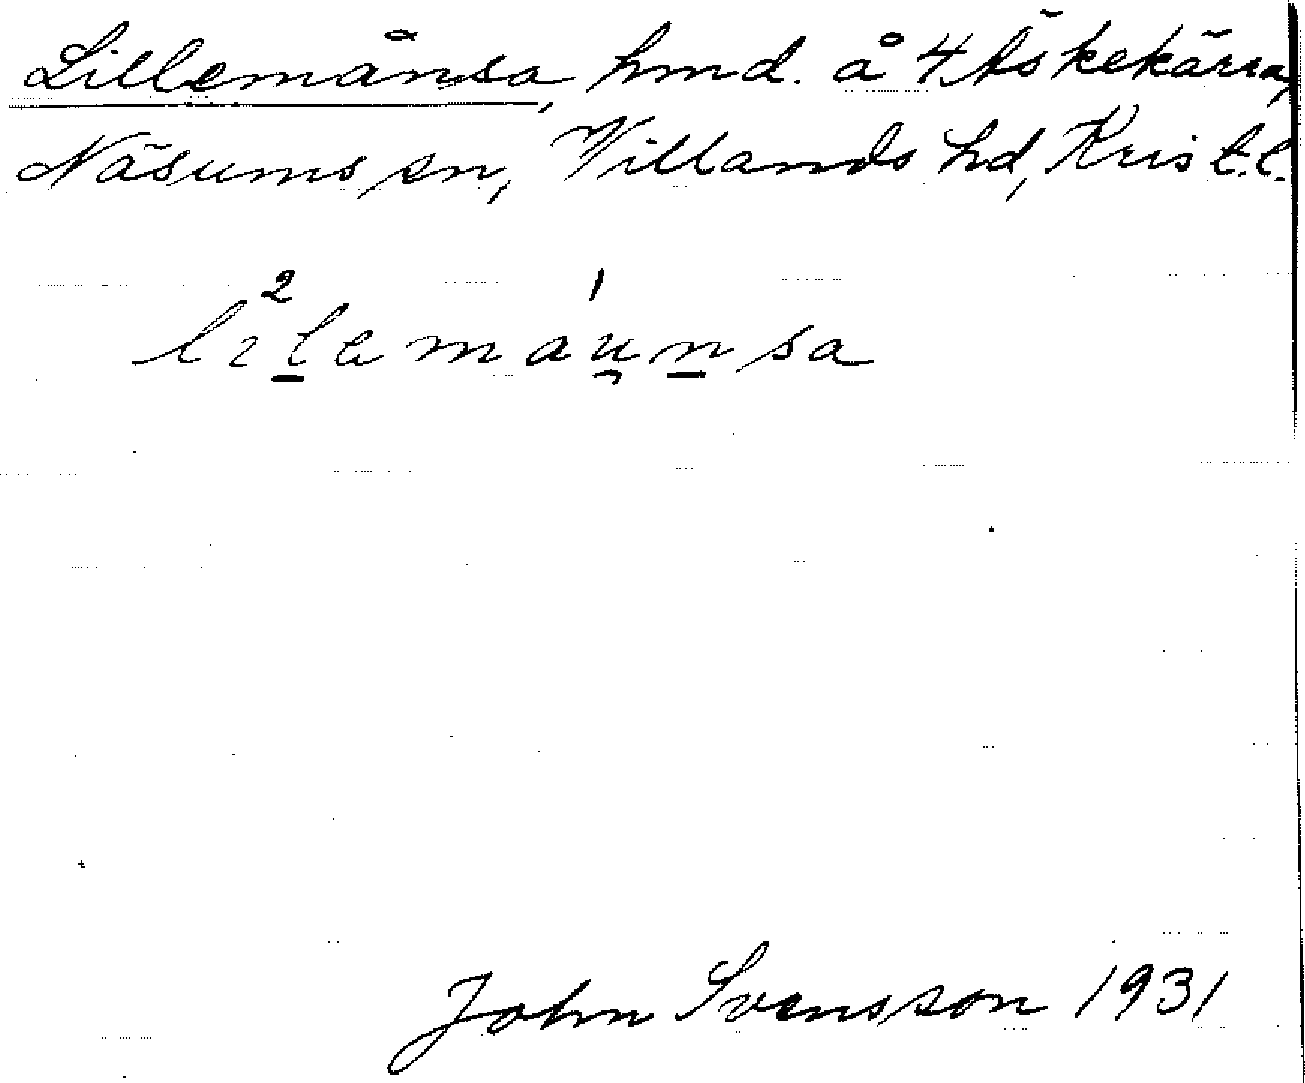 Lillemånsa, hmd. å 4 Äskekärra,
Näsums sn, Villands hd, Krist. l.
lı²l̲emau̯¹n̲sa
John Svensson 1931